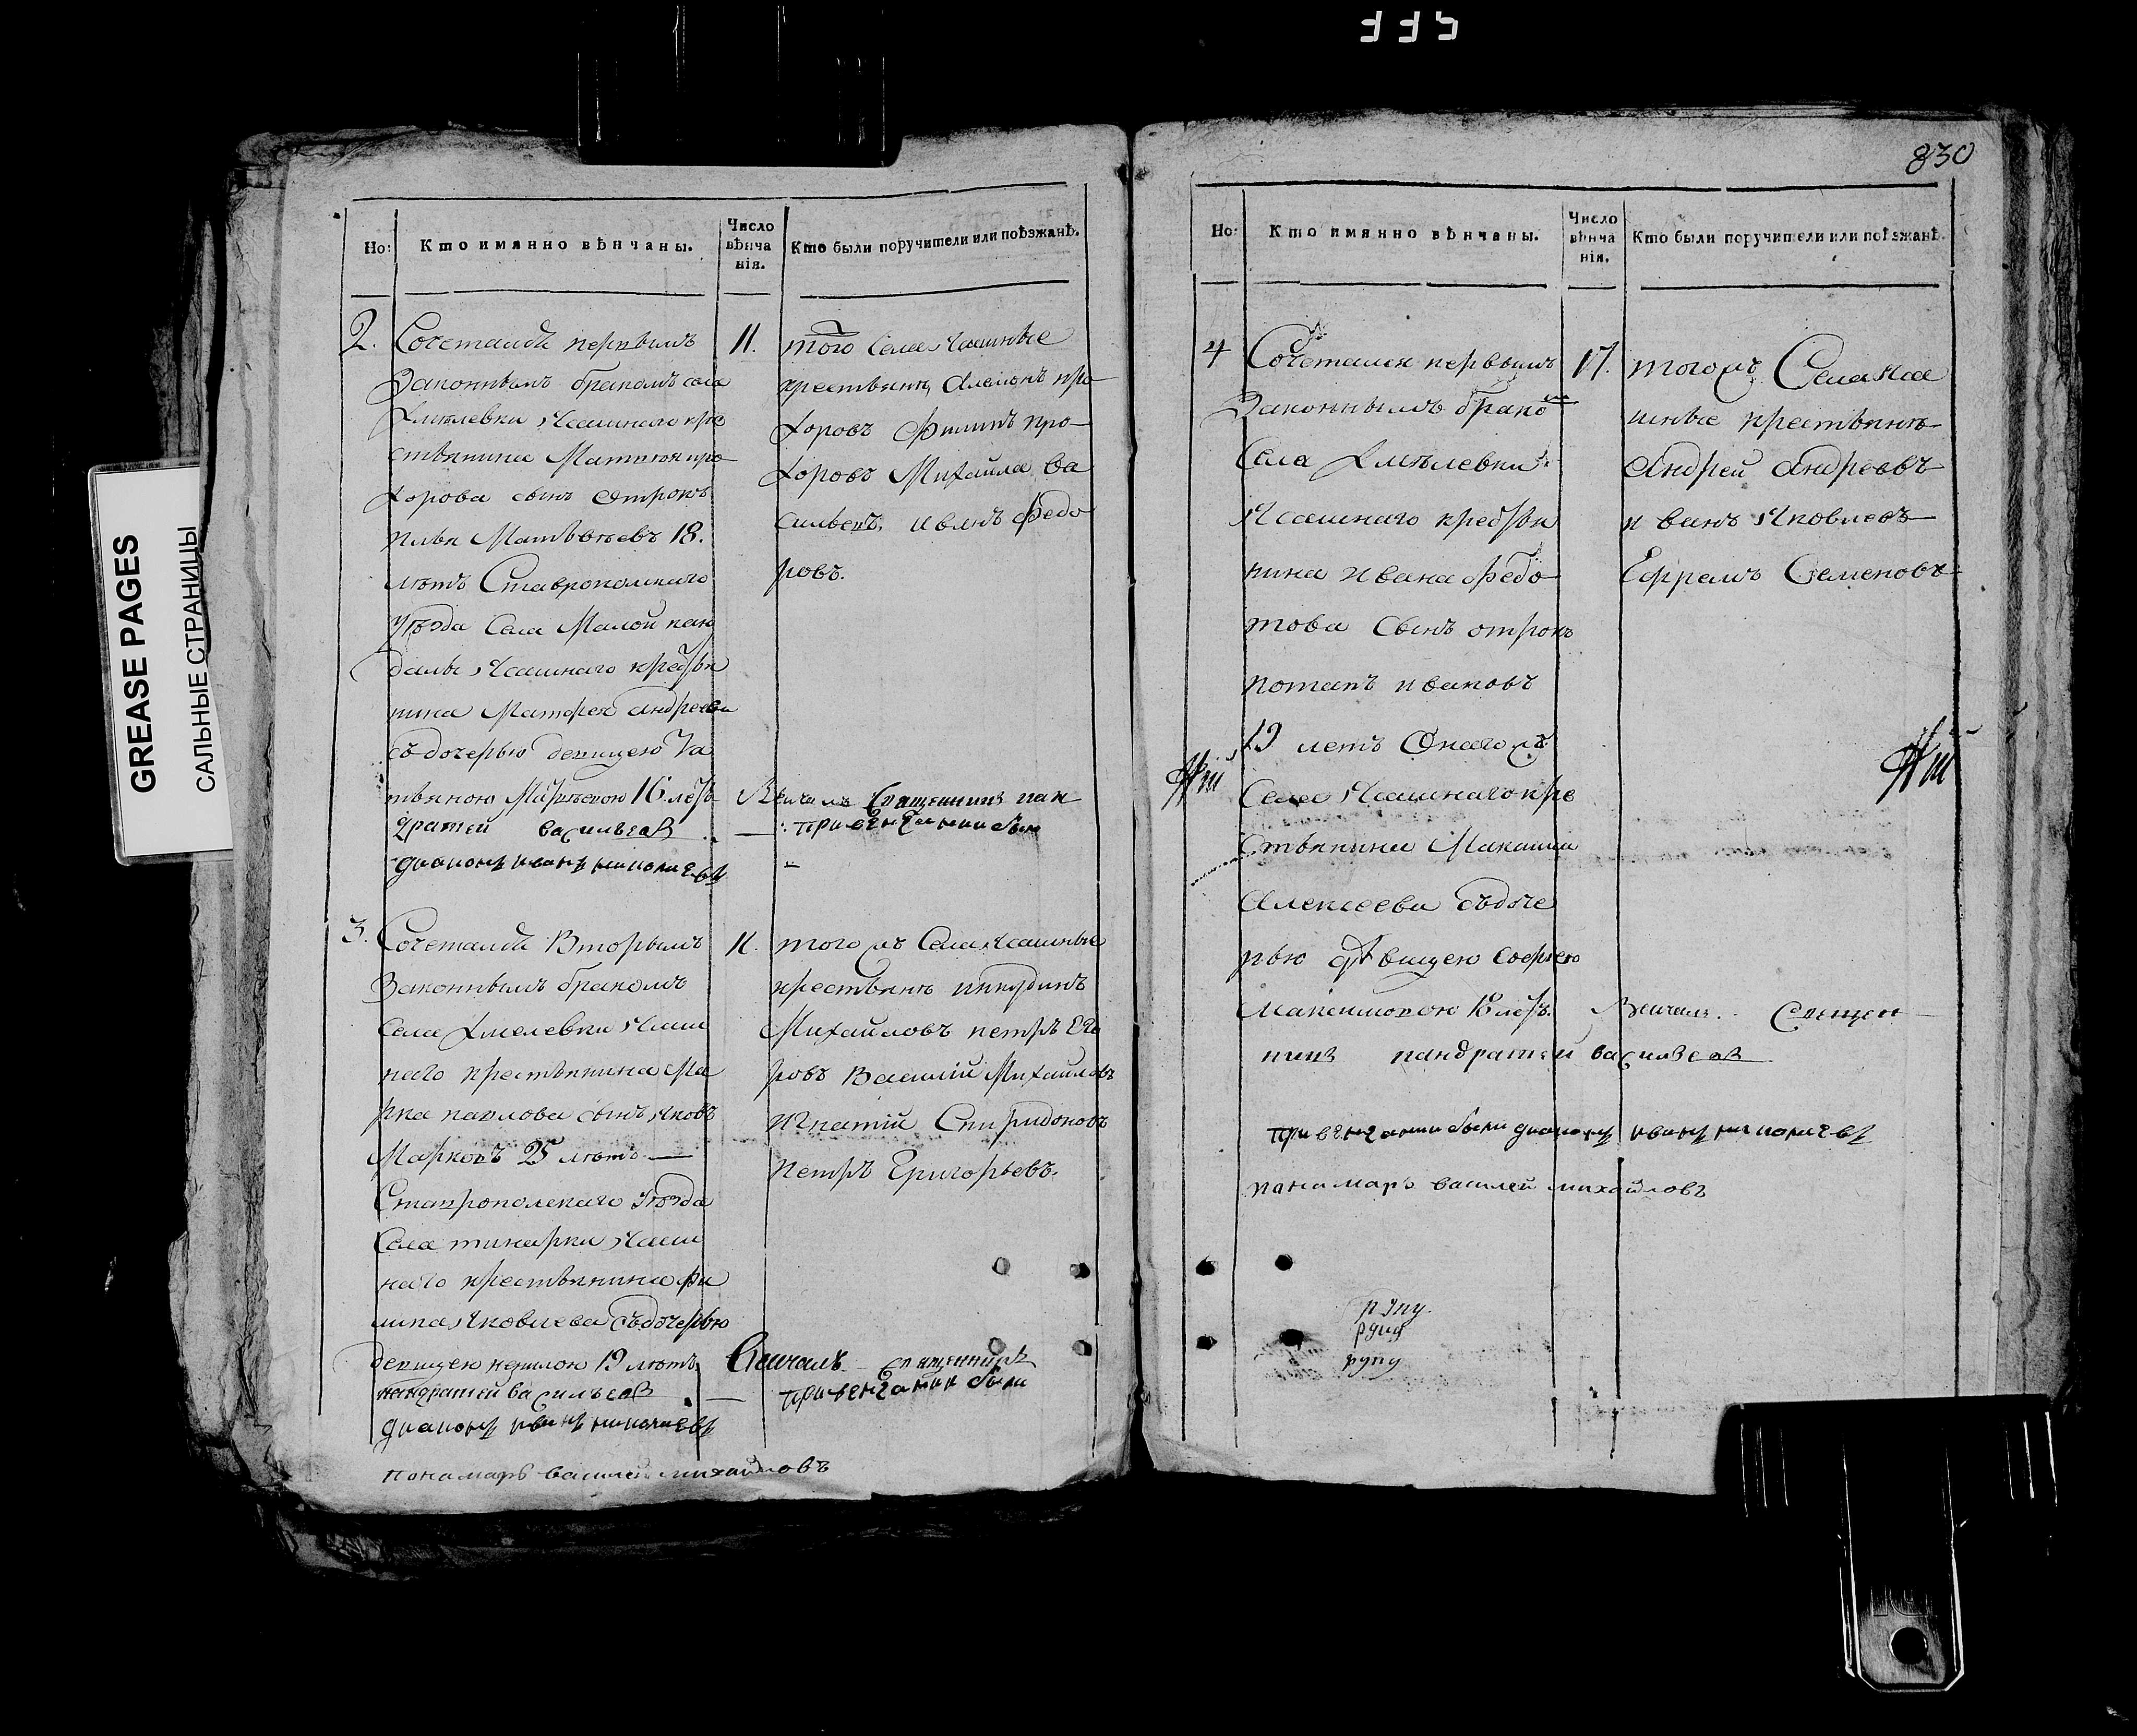 335
830
GREASE PAGES
САЛЬНЫЕ СТРАНИЦЫ
Но: Кто имянно вѣнчаны. Число вѣнча нія. Кто были поручители или поѣзжанѣ.
2. Сочеталса первымъ
законнымъ бракомъ села
Хмѣлевки Ясашнаго кре
стьянина Матвея про
хорова сынъ отрокъ
Илья Матвѣевъ 18.
лѣтъ Ставропольскаго
уѣзда Села Малой кан
далы Ясашнаго крестьян
нина Матфея андреева
съ дочерью девицею Та
тьяною 16 летъ
11. того Села Ясашные
крестьяня, про
хоровъ Филипъ про
хоровъ Михайла Ва
сильевъ, иванъ Федо
ровъ.
Венчалъ Священникъ пан
дратей васильевъ
при венчании были
диаконъ иванъ николаевъ
3. Сочеталса Вторымъ
Законнымъ бракомъ
села Хмелевки Ясаш
наго крестьянина Ма
рка павлова сынъ яковъ
Марковъ 25 лѣтъ
Ставропольскаго уѣзда
Села тинарки Ясаш
наго крестьянина фи
липа Яковлева съ дочерью
девицею 19 лѣтъ
11. того жъ Села Ясашные
крестьяня никудинъ
Михайловъ петръ Его
ровъ Василий Михайловъ
Игнатий Спиридоновъ
петръ Григорьевъ.
Венчалъ священникъ
пандратей васильевъ
при венчании были
диаконъ иванъ николаевъ
понамарь василей михайловъ
Но: Кто имянно вѣнчаны. Число вѣнча нія. Кто были поручители или поѣзжанѣ.
4 Сочетался первымъ
Законнымъ бракомъ
Села Хмѣлевки
Ясашнаго крестьян
нина Ивана Федо
това сынъ отрокъ
потапъ ивановъ
19 летъ Онаго жъ
Села Ясашнаго кре
стьянина Максима
Алексеева съ доче
рью девицею Софьею
Максимовою 18 летъ.
17. того жъ Села Яса
шные крестьяня
Андрей Андреевъ
иванъ Яковлевъ
Ефремъ Семеновъ
Венчалъ Священ
никъ пандратей васильевъ
при венчании были диаконъ иванъ николаевъ
панамарь василей михайловъ